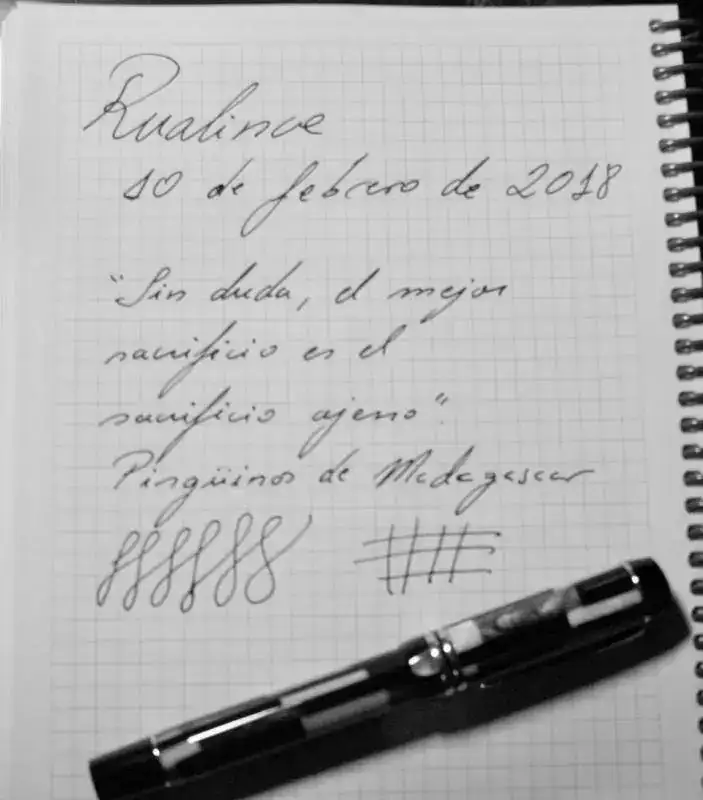 Rualince
10 de febrero de 2018
"Sin duda, el mejor
sacrificio es el
sacrificio ajeno".
Pingüinos de Madagascar